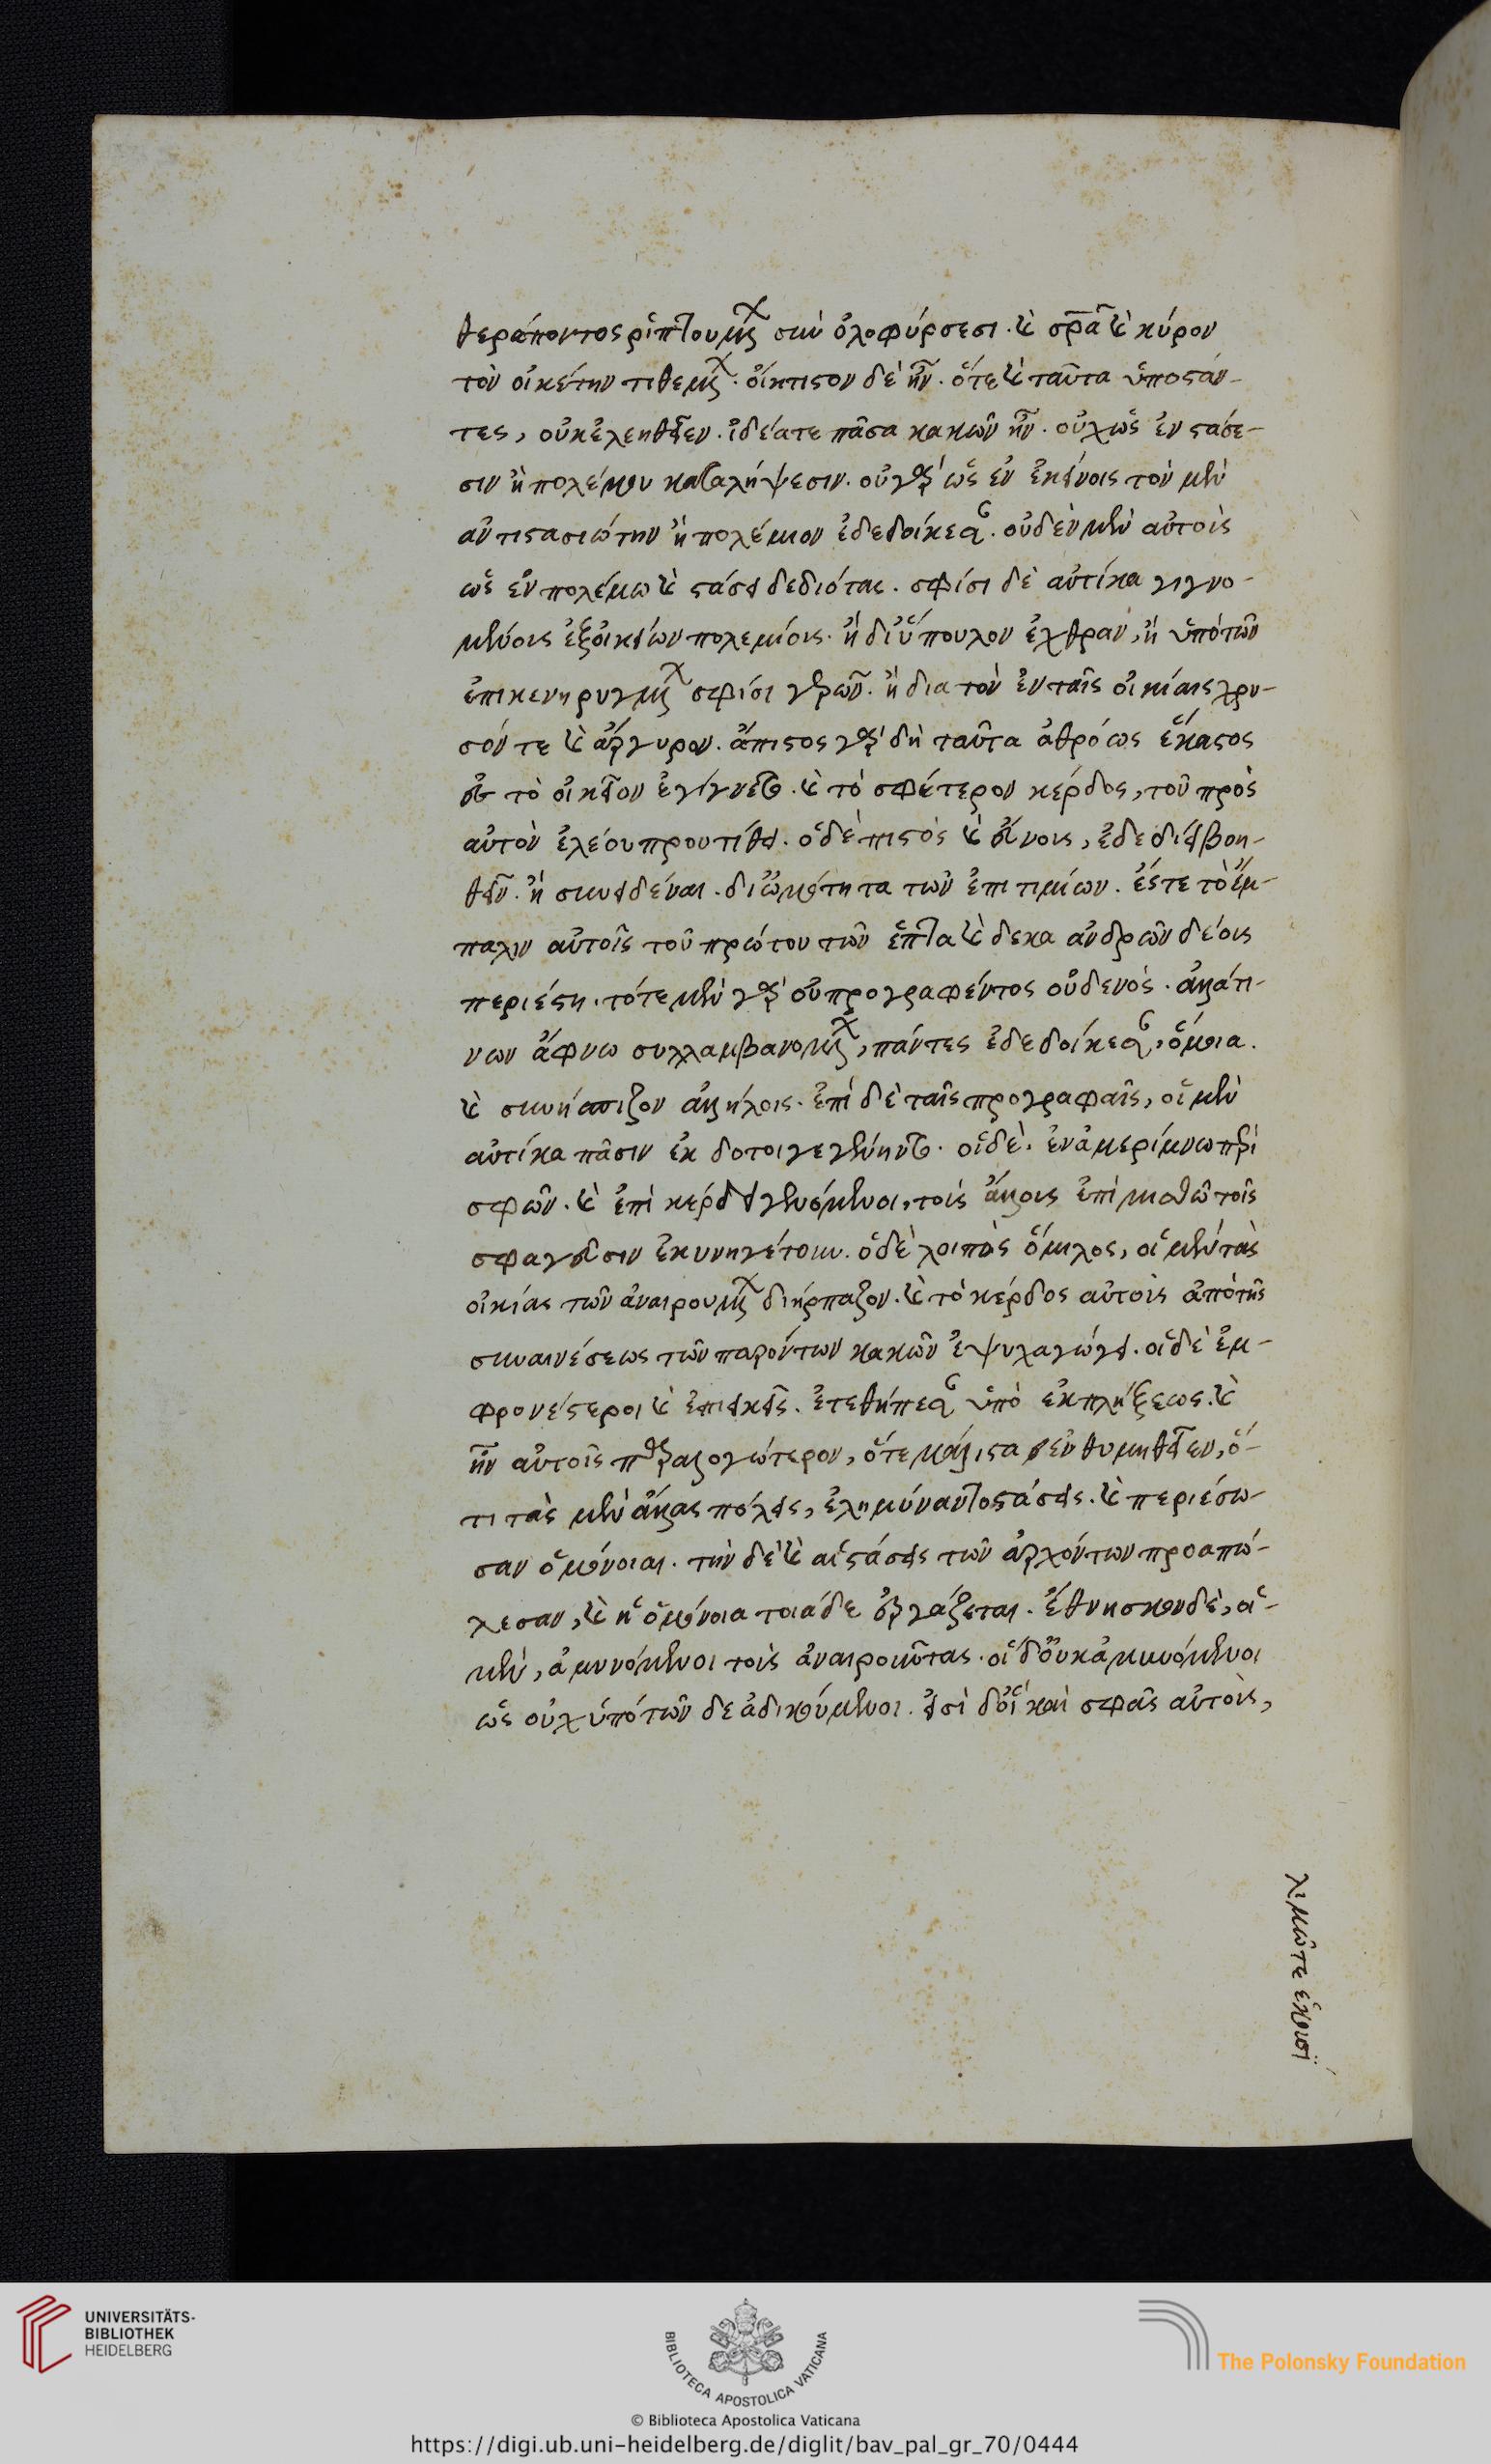 θεράποντος ῥιπτουμένων σὺν ὀλοφύρσεσι. καὶ σωτῆρα καὶ κύριον
τὸν οἰκέτην τιθεμένων. οἴκτιστον δὲ ἦν. ὅτε καὶ ταῦτα ὑποστάν-
τες, οὐκ ἐλεηθεῖεν. ἰδέα τε πᾶσα κακῶν ἦν. οὐχ ὡς ἐν στάσε-
σιν ἢ πολέμου καταλήψεσιν. οὐ γὰρ ὡς ἐν ἐκείνοις τὸν μὲν
ἀντιστασιώτην ἢ πολέμιον ἐδεδοίκεσαν. οὐδὲν μὲν αὐτοὺς
ὡς ἐν πολέμω καὶ στάσει δεδιότας. σφίσι δὲ αὐτίκα γιγνο-
μένοις ἐξ οἰκείων πολεμίοις. ἢ δι' ὕπουλον ἔχθραν, ἢ ὑπὸ τῶν
ἐπικεκηρυγμένων σφίσι γερῶν. ἢ δια τὸν ἐν ταῖς οἰκίαις χρυ-
σόν τε καὶ ἄργυρον. ἄπιστος γὰρ δὴ ταῦτα ἀθρόως ἕκαστος
ἐς τὸ οἰκεῖον ἐγίγνετο. καὶ τὸ σφέτερον κέρδος, τοῦ πρὸς
αὐτὸν ἐλέου προυτίθει. ὁ δὲ πιστὸς καὶ εὔνους, ἐδεδίει βοη-
θεῖν. ἢ συνειδέναι. δι' ὠμότητα τῶν ἐπιτιμίων. ἔς τε τὸ ἔμ-
παλιν αὐτοῖς τοῦ πρώτου τῶν ἑπτα καὶ δεκα ἀνδρῶν δέους
περιέστη. τότε μὲν γὰρ οὐ προγραφέντος οὐδενὸς. ἀλλά τι-
νων ἄφνω συλλαμβανομένων, πάντες ἐδεδοίκεσαν, ὅμοια.
καὶ συνήσπιζον ἀλλήλοις. ἐπὶ δὲ ταῖς προγραφαῖς, οἱ μὲν
αὐτίκα πᾶσιν ἐκ δοτοι γεγένηντο. οἱ δὲ. ἐν ἀμερίμνω περὶ
σφῶν. καὶ ἐπὶ κέρδει γενόμενοι, τοὺς ἄλλους ἐπὶ μισθῶ τοῖς
σφαγεῦσιν ἐκυνηγέτουν. ὁ δὲ λοιπὸς ὅμιλος, οἱ μὲν τὰς
οἰκίας τῶν ἀναιρουμένων διήρπαζον. καὶ τὸ κέρδος αὐτοὺς ἀπὸ τῆς
συναινέσεως τῶν παρόντων κακῶν ἐψυχαγώγει. οἱ δὲ ἐμ-
φρονέστεροι καὶ ἐπιεικεῖς. ἐτεθήπεσαν ὑπὸ ἐκπλήξεως. καὶ
ἦν αὐτοῖς παραλογώτερον, ὅτε μάλιστα ἐνθυμηθεῖεν, ὅ-
τι τὰς μὲν ἄλλας πόλεις, ἐλημύναντο στάσεις. καὶ περιέσω-
σαν ὁμόνοιαι. τὴν δὲ καὶ αἱ στάσεις τῶν ἀρχόντων προαπώ-
λεσαν, καὶ ἡ ὁμόνοια τοιάδε ἐργάζεται. ἔθνησκον δὲ, οἱ
μὲν, ἀμυνόμενοι τοὺς ἀναιροῦντας. οἱ δ' οὐκ ἀμυνόμενοι
ὡς οὐχ ὑπὸ τῶν δε ἀδικούμενοι. εἰσὶ δ' οἳ καὶ σφᾶς αὐτοὺς,
λιμῶ τε ἑκουσί
UNIVERSITÄTS-
BIBLIOTHEK
HEIDELBERG
BIBLIOTECA APOSTOLICA VATICANA
The Polonsky Foundation
© Biblioteca Apostolica Vaticana
https://digi.ub.uni-heidelberg.de/diglit/bav_pal_gr_70/0444